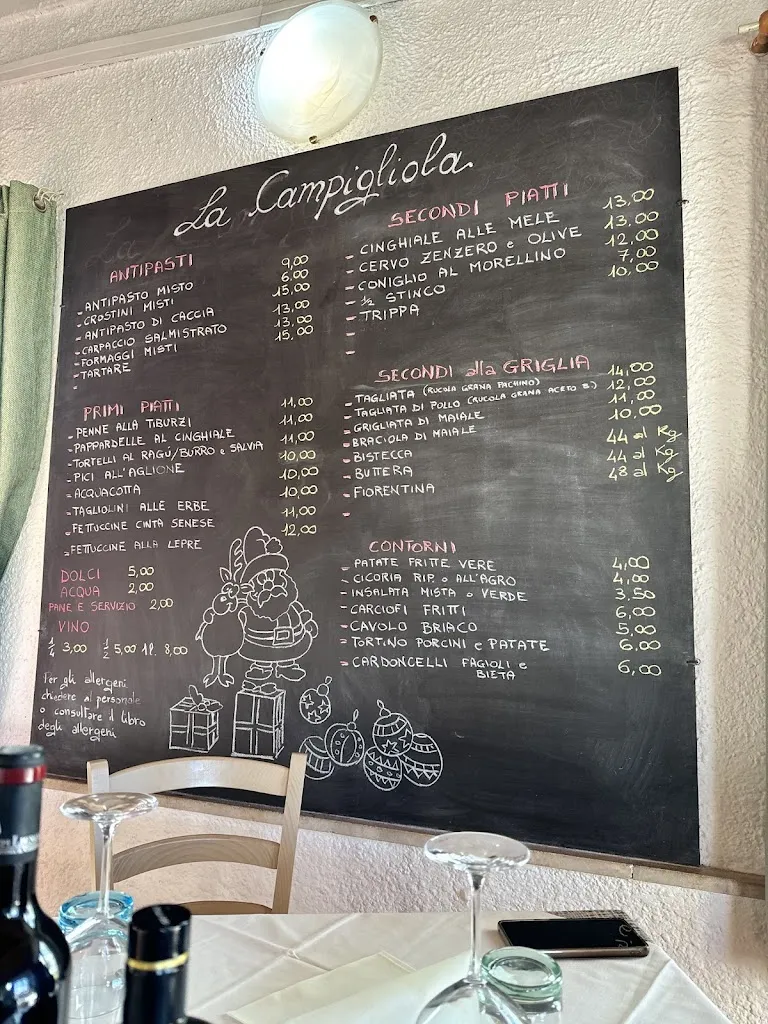 La Campigliola
ANTIPASTI
- ANTIPASTO MISTO 9,00
- CROSTINI MISTI 6,00
- ANTIPASTO DI CACCIA 15,00
- CARPACCIO SALMISTRATO 13,00
- FORMAGGI MISTI 13,00
- TARTARE 15,00
PRIMI PIATTI
- PENNE ALLA TIBURZI 11,00
- PAPPARDELLE AL CINGHIALE 11,00
- TORTELLI AL RAGÚ/BURRO e SALVIA 11,00
- PICI ALL'AGLIONE 10,00
- ACQUACOTTA 10,00
- TAGLIOLINI ALLE ERBE 10,00
- FETTUCCINE CINTA SENESE 11,00
- FETTUCCINE ALLA LEPRE 12,00
DOLCI 5,00
ACQUA 2,00
PANE E SERVIZIO 2,00
VINO
1/4 3,00 1/2 5,00 1l. 8,00
Per gli allergeni
chiedere al personale
o consultare il libro
degli allergeni
SECONDI PIATTI
- CINGHIALE ALLE MELE 13,00
- CERVO ZENZERO e OLIVE 13,00
- CONIGLIO AL MORELLINO 12,00
- 1/2 STINCO 7,00
- TRIPPA 10,00
SECONDI alla GRIGLIA
- TAGLIATA (RUCOLA GRANA PACHINO) 14,00
- TAGLIATA DI POLLO (RUCOLA GRANA ACETO B.) 12,00
- GRIGLIATA DI MAIALE 11,00
- BRACIOLA DI MAIALE 10,00
- BISTECCA 44 al Kg
- BUTTERA 44 al Kg
- FIORENTINA 48 al Kg
CONTORNI
- PATATE FRITTE VERE 4,00
- CICORIA RIP. o ALL'AGRO 4,00
- INSALATA MISTA o VERDE 3,50
- CARCIOFI FRITTI 6,00
- CAVOLO BRIACO 5,00
- TORTINO PORCINI e PATATE 6,00
- CARDONCELLI FAGIOLI e
BIETA 6,00